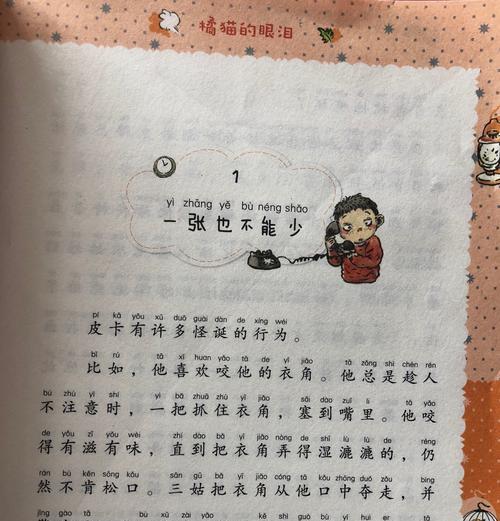 橘猫的眼泪
1
yì zhāng yě bù néng shǎo
一张也不能少
pí kǎ yǒu xǔ duō guài dàn de xíng wéi
皮卡有许多怪诞的行为。
bǐ rú tā xǐ huan yǎo tā de yī jiǎo tā zǒng shì chèn rén
比如，他喜欢咬他的衣角。他总是趁人
bú zhù yì shí yì bǎ zhuā zhù yī jiǎo sāi dào zuǐ lǐ tā yǎo
不注意时，一把抓住衣角，塞到嘴里。他咬
de yǒu zī yǒu wèi zhí dào bǎ yī jiǎo nòng de shī lù lù de réng
得有滋有味，直到把衣角弄得湿漉漉的，仍
rán bù kěn sōng kǒu sān gū bǎ yī jiǎo cóng tā kǒu zhōng duó zǒu bìng
然不肯松口。三姑把衣角从他口中夺走，并
jǐng gào tā